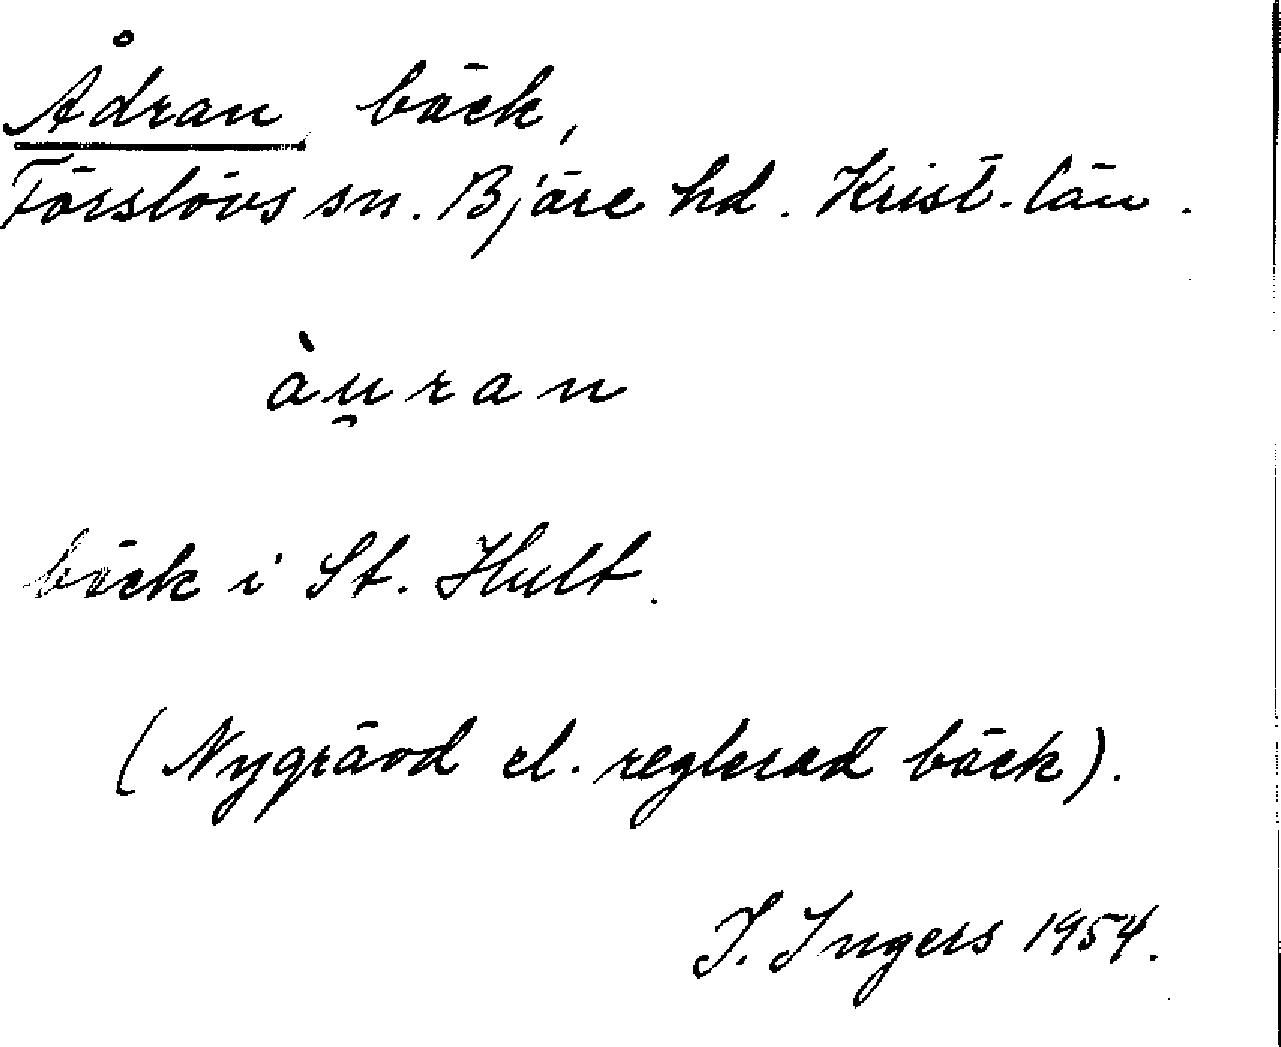 Ådran bäck,
Förslövs sn. Bjäre hd. Krist. län.
àu̯ran
bäck i St. Hult.
(Nygrävd el. reglerad bäck).
I. Ingers 1954.